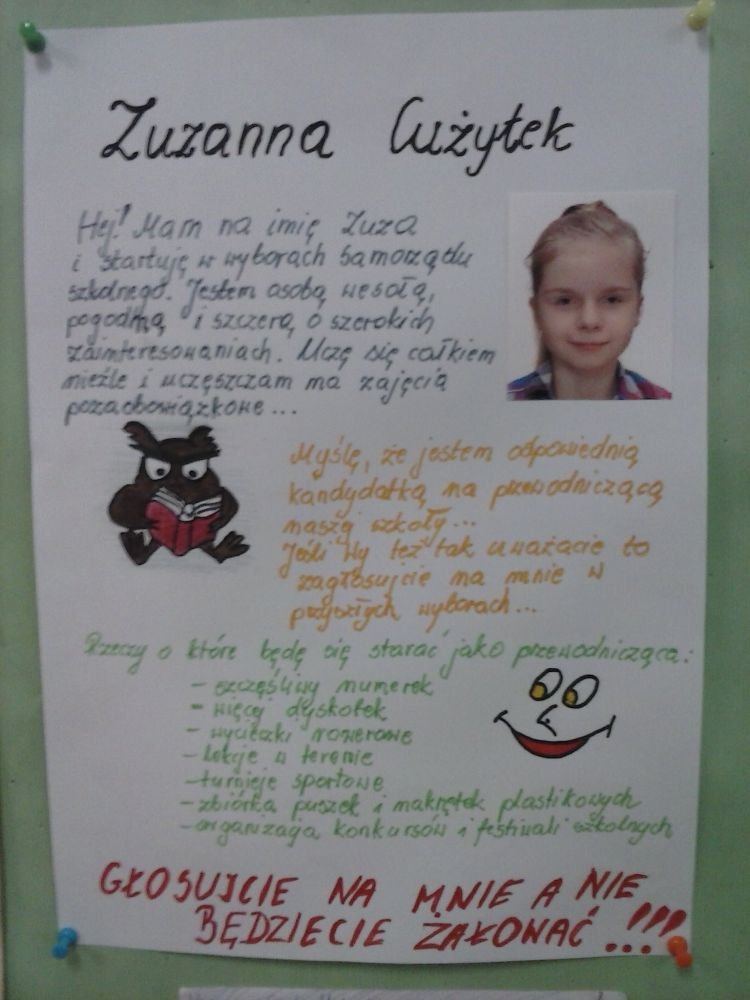 Zuzanna Cużytek
Hej! Mam na imię Zuza
i startuję w wyborach samorządu
szkolnego. Jestem osobą wesołą,
pogodną i szczerą o szerokich
zainteresowaniach. Uczę się całkiem
nieźle i uczęszczam na zajęcia
pozaobowiązkowe...
Myślę, że jestem odpowiednią
kandydatką na przewodniczącą
naszej szkoły...
Jeśli Wy też tak uważacie to
zagłosujcie na mnie w
przyszłych wyborach...
Rzeczy o które będę się starać jako przewodnicząca:
- szczęśliwy numerek
- więcej dyskotek
- wycieczki rowerowe
- lekcje w terenie
- turnieje sportowe
- zbiórka puszek i makrętek plastikowych
- organizacja konkursów i festiwali szkolnych
GŁOSUJCIE NA MNIE A NIE
BĘDZIECIE ŻAŁOWAĆ!!!